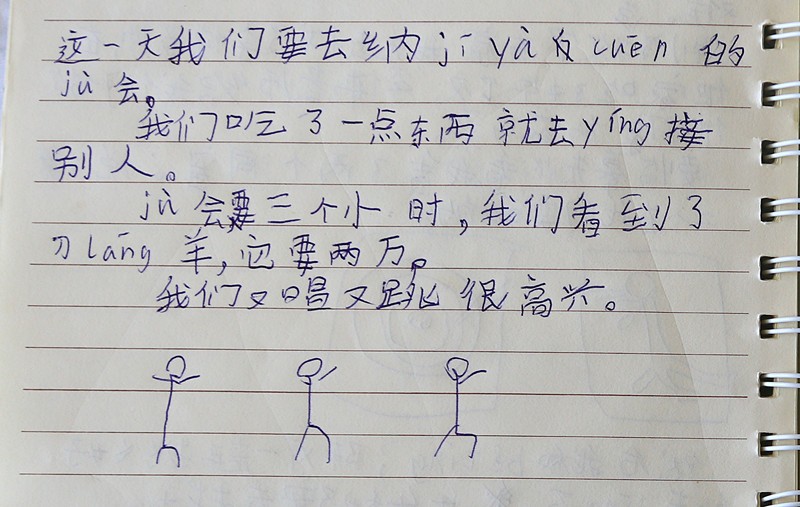 这一天我们要去纳jī yà反cuēn的
jù会。
我们吃了一点东西就去yíng接
别人。
jù会要三个小时，我们看到了
刀lāng羊，它要两万。
我们又唱又跳很高兴。